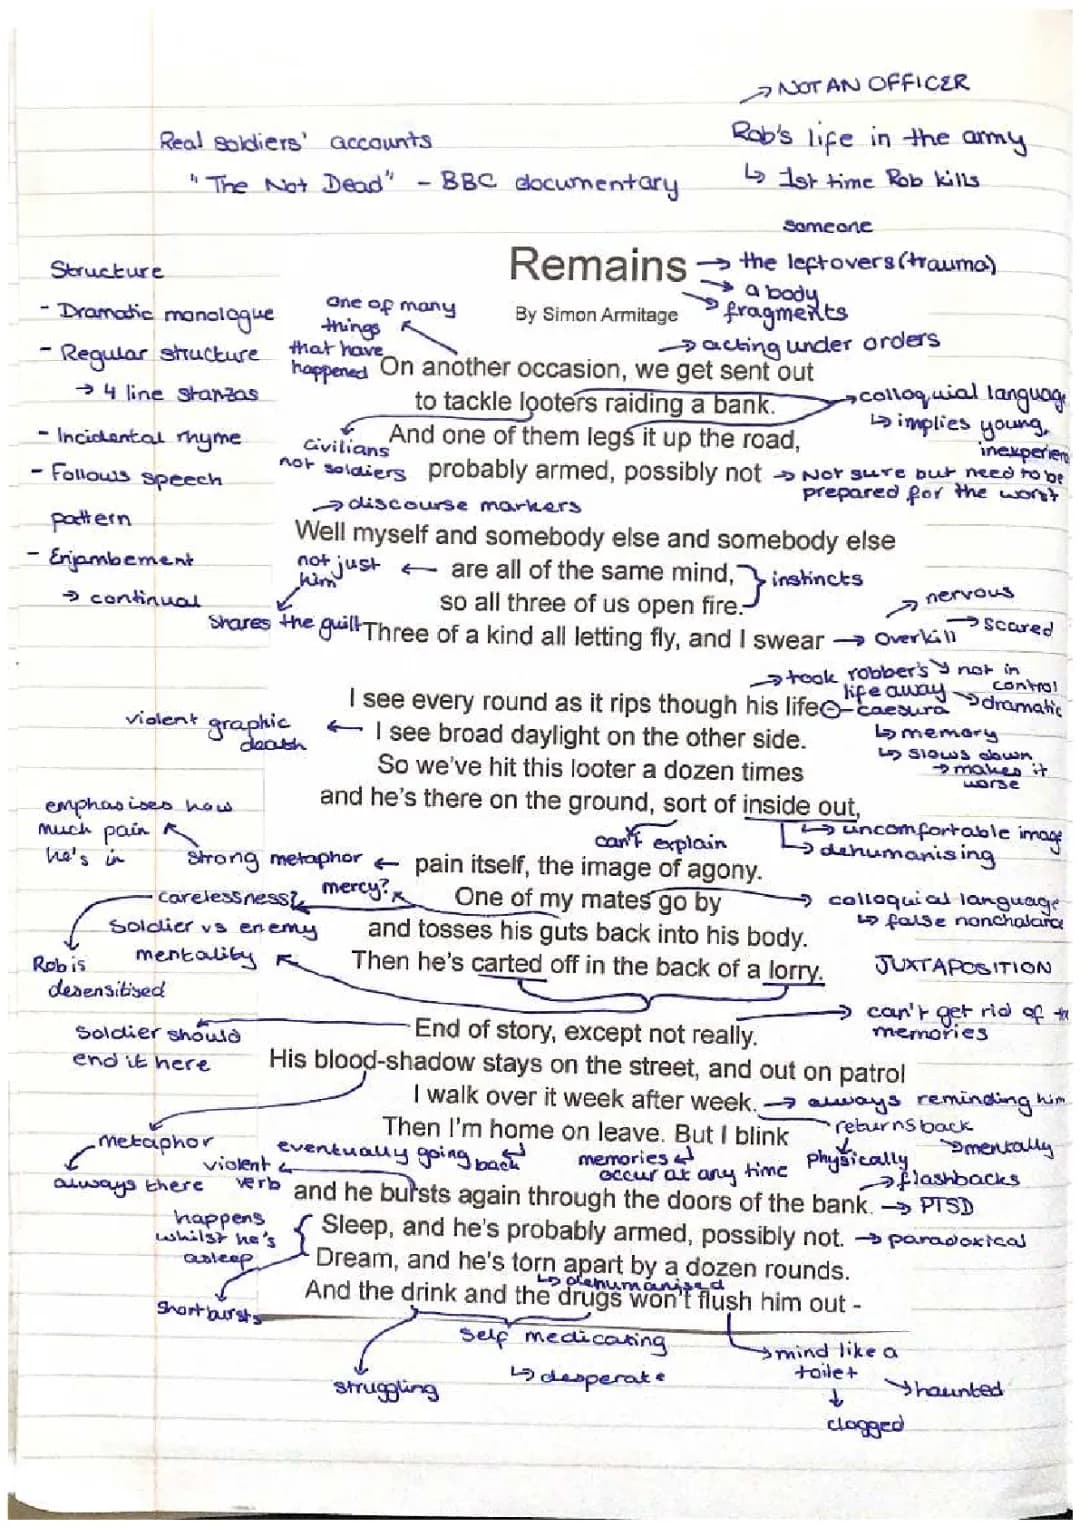 → NOT AN OFFICER
Real soldiers' accounts
Rob's life in the army
"The Not Dead" - BBC documentary
↳ 1st time Rob kills
someone
Structure
Remains → the leftovers (trauma)
→ a body
→ fragments
- Dramatic monologue
one of many
things
that have
happened
By Simon Armitage
- Regular structure
→ acting under orders
On another occasion, we get sent out
→ 4 line stanzas
to tackle looters raiding a bank.
→ colloquial language
↳ implies young,
inexperien
- Incidental rhyme
civilians
not soldiers
And one of them legs it up the road,
- Follows speech
pattern
probably armed, possibly not → Not sure but need to be
prepared for the worst
→ discourse markers
Well myself and somebody else and somebody else
- Enjambement
→ continual
not just
him
← are all of the same mind, } instincts
so all three of us open fire.
→ nervous
shares the guilt
Three of a kind all letting fly, and I swear → Overkill
→ scared
→ not in
control
→ took robber's
life away
→ dramatic
I see every round as it rips though his life - caesura
↳ memory
↳ slows down
→ makes it
worse
violent graphic
death
← I see broad daylight on the other side.
So we've hit this looter a dozen times
and he's there on the ground, sort of inside out,
can't explain
↳ uncomfortable image
↳ dehumanising
emphasises how
much pain
he's in
strong metaphor ← pain itself, the image of agony.
carelessness?
mercy?
One of my mates go by
→ colloquial language
↳ false nonchalance
Soldier vs enemy
mentality
and tosses his guts back into his body.
Rob is
desensitised
Then he's carted off in the back of a lorry.
JUXTAPOSITION
→ can't get rid of th
memories
Soldier should
end it here
End of story, except not really.
His blood-shadow stays on the street, and out on patrol
I walk over it week after week. → always reminding him
returns back
→ mentally
physically
→ flashbacks
metaphor
always there
Then I'm home on leave. But I blink
eventually going back
memories
occur at any time
violent
verb
and he bursts again through the doors of the bank. → PTSD
happens
whilst he's
asleep
Sleep, and he's probably armed, possibly not. → paradoxical
Dream, and he's torn apart by a dozen rounds.
↳ dehumanised
short bursts
And the drink and the drugs won't flush him out -
self medicating
↳ desperate
struggling
→ mind like a
toilet
→ haunted
↓
clogged